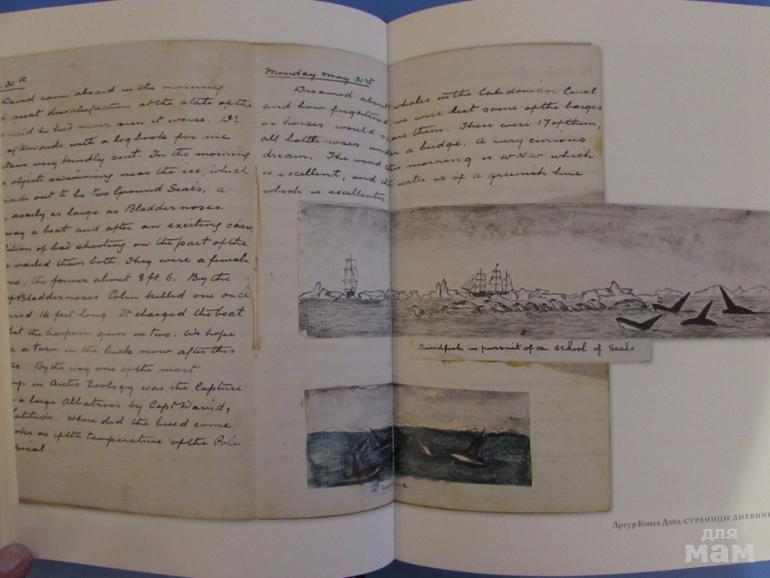 David come aboard in the morning
great dissatisfaction at the state of the
and he had never seen it worse. Dr
afterwards with a logbook for me
very kindly sent. In the morning
objects swimming near the ice, which
made out to be two Ground Seals, a
nearly as large as Bladdernoses.
away a boat and after an exciting chase
of bad shooting on the part of the
nailed them both. They were a female
the former about 8 ft. 6. By the
Bladdernoses Colin killed one once
14 feet long. It charged the boat
but the harpoon gun in two. We hope
a turn in the luck now after this
By the way one of the most
in Arctic Zoology was the Capture
a large Albatross by Capt David,
latitude. Where did the breed come
of the temperature of the Pole
Monday May 31st
Dreamed about whales in the Caledonian Canal
and how frightened we were lest some of the barges
or horses would them. There were 17 of them,
all bottlenoses under a bridge. A very curious
dream. The wind this morning is WNW which
is excellent, and the water is of a greenish hue
which is excellenter.
Swordfish in pursuit of a school of Seals
Артур Конан Дойл. СТРАНИЦЫ ДНЕВНИК
для
мам